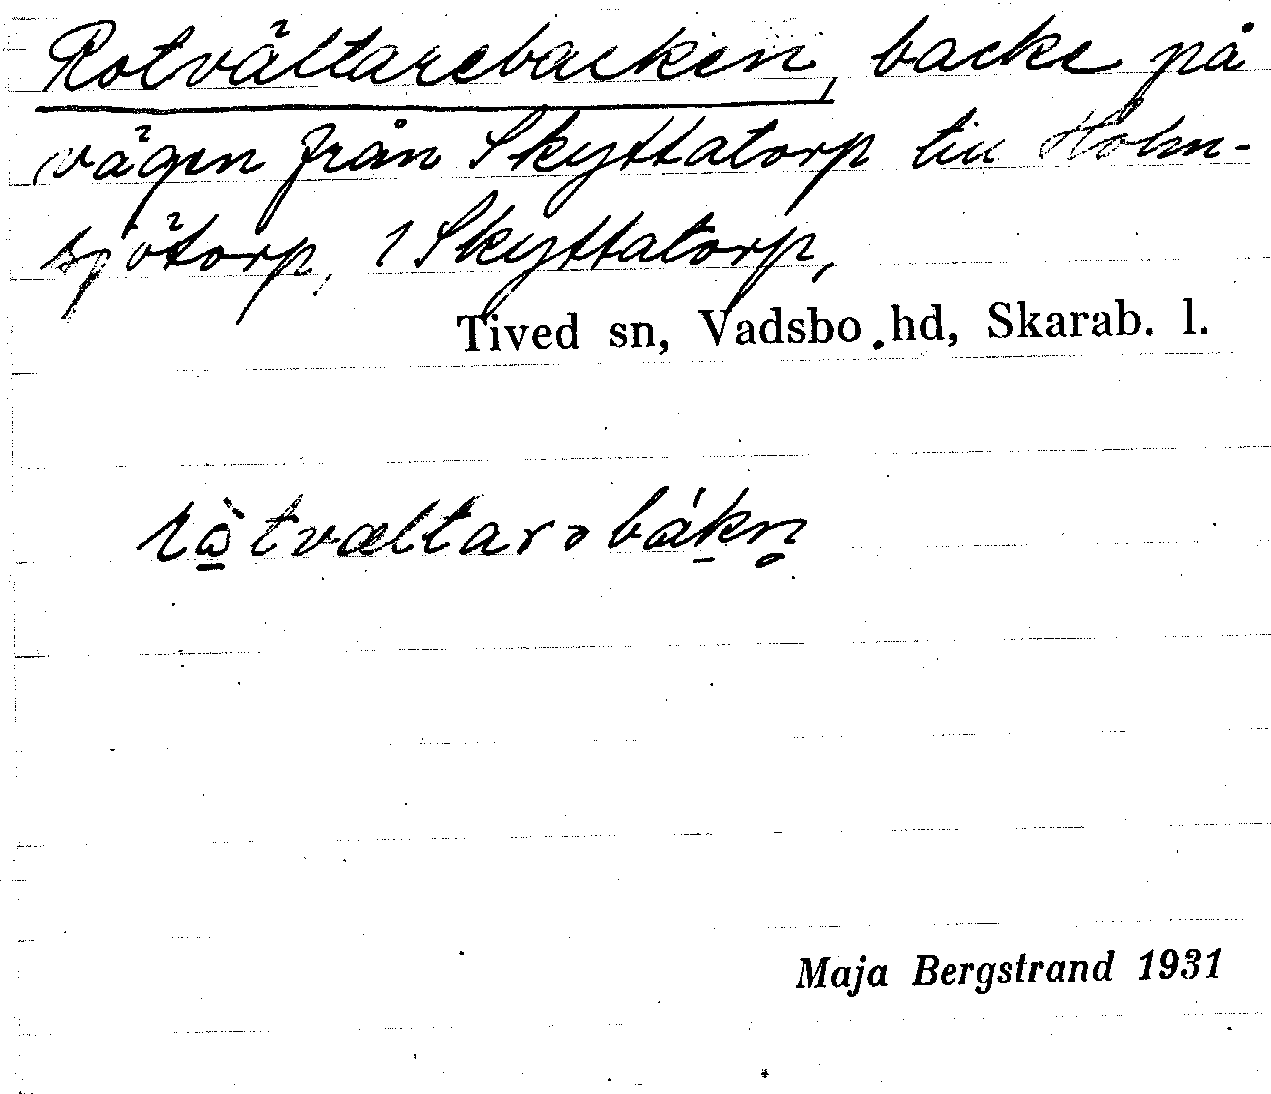 Rotvältarebacken, backe på
vägen från Skyttatorp till Holm-
sjötorp, 1 Skyttatorp,
Tived sn, Vadsbo hd, Skarab. l.
rò̱tvæltarəbák̠n̥
Maja Bergstrand 1931